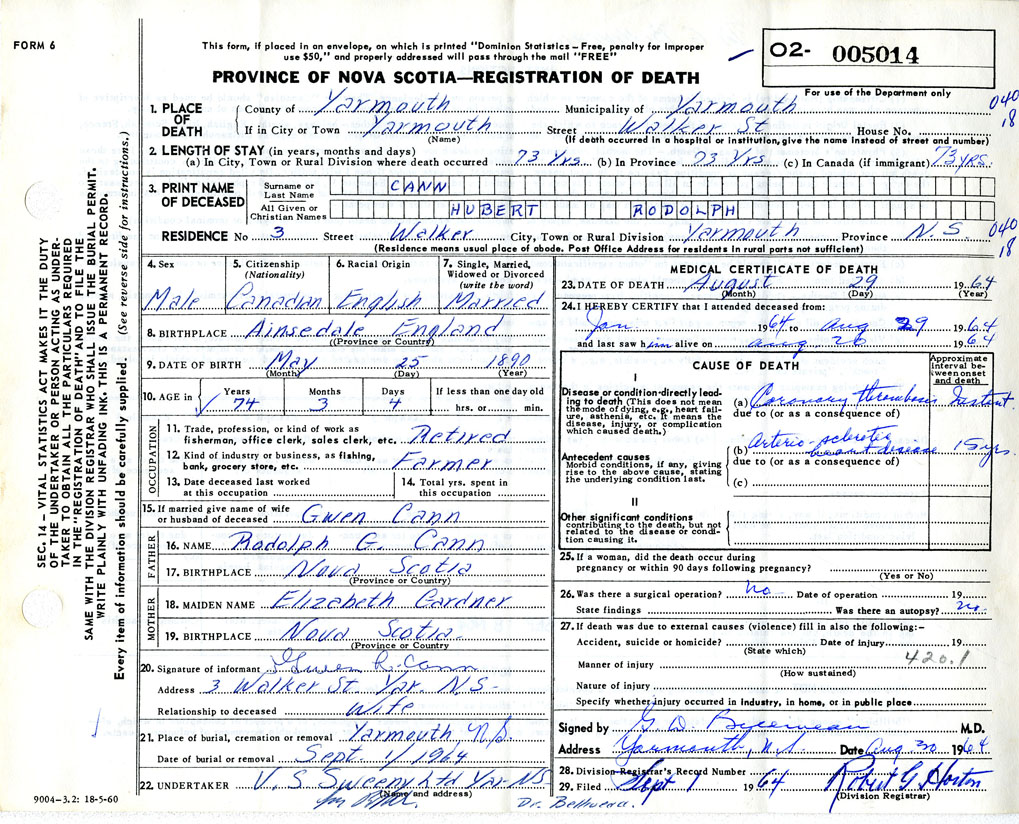 FORM 6
This form, if placed in an envelope, on which is printed "Dominion Statistics – Free, penalty for improper
use $50," and properly addressed will pass through the mail "FREE"
PROVINCE OF NOVA SCOTIA—REGISTRATION OF DEATH
O2- 005014
For use of the Department only
040
18
1. PLACE OF DEATH
County of Yarmouth Municipality of Yarmouth
If in City or Town Yarmouth Street Walker St House No.
(Name) (If death occurred in a hospital or institution, give the name instead of street and number)
2. LENGTH OF STAY (in years, months and days)
(a) In City, Town or Rural Division where death occurred 73 Yrs. (b) In Province 73 Yrs (c) In Canada (if immigrant) 73 yrs.
3. PRINT NAME OF DECEASED
Surname or Last Name CANN
All Given or Christian Names HUBERT RODOLPH
RESIDENCE No 3 Street Walker City, Town or Rural Division Yarmouth Province N.S.
040
18
(Residence means usual place of abode. Post Office Address for residents in rural parts not sufficient)
4. Sex 5. Citizenship (Nationality) 6. Racial Origin 7. Single, Married, Widowed or Divorced (write the word)
Male Canadian English Married
8. BIRTHPLACE Ainsedale England
(Province or Country)
9. DATE OF BIRTH May 25 1890
(Month) (Day) (Year)
10. AGE in Years Months Days If less than one day old
74 3 4 hrs. or min.
OCCUPATION
11. Trade, profession, or kind of work as
fisherman, office clerk, sales clerk, etc. Retired
12. Kind of industry or business, as fishing,
bank, grocery store, etc. Farmer
13. Date deceased last worked
at this occupation
14. Total yrs. spent in
this occupation
15. If married give name of wife
or husband of deceased Gwen Cann
FATHER
16. NAME Rodolph G. Cann
17. BIRTHPLACE Nova Scotia
(Province or Country)
MOTHER
18. MAIDEN NAME Elizabeth Gardner
19. BIRTHPLACE Nova Scotia
(Province or Country
20. Signature of informant Gwen R. Cann
Address 3 Walker St. Yar. N.S.
Relationship to deceased Wife
21. Place of burial, cremation or removal Yarmouth N.S
Date of burial or removal Sept. 1/1964
22. UNDERTAKER V. S. Sweeny Ltd Yar. NS
(Name and address)
9004–3.2: 18-5-60
MEDICAL CERTIFICATE OF DEATH
23. DATE OF DEATH August 29 1964
(Month) (Day) (Year)
24. I HEREBY CERTIFY that I attended deceased from:
Jan 1964 to Aug 29 1964
and last saw him alive on Aug 26 1964
CAUSE OF DEATH
Approximate
interval be-
tween onset
and death
I
Disease or condition directly lead-
ing to death (This does not mean
the mode of dying, e.g., heart fail-
ure, asthenia, etc. It means the
disease, injury, or complication
which caused death.)
(a) Coronary thrombosis Instant.
due to (or as a consequence of)
Antecedent causes
Morbid conditions, if any, giving
rise to the above cause, stating
the underlying condition last.
(b) Arterio-sclerotic
heart disease 15 yrs.
due to (or as a consequence of)
(c)
II
Other significant conditions
contributing to the death, but not
related to the disease or condi-
tion causing it.
25. If a woman, did the death occur during
pregnancy or within 90 days following pregnancy?
(Yes or No)
26. Was there a surgical operation? No Date of operation 19
State findings Was there an autopsy? No
27. If death was due to external causes (violence) fill in also the following:–
Accident, suicide or homicide? Date of injury 19
(State which)
420.1
Manner of injury
(How sustained)
Nature of injury
Specify whether injury occurred in industry, in home, or in public place
Signed by G. D. M.D.
Address Yarmouth, N.S. Date Aug 30 1964
28. Division Registrar's Record Number
29. Filed Sept 1 1964 Robert G Horton
(Division Registrar)
Dr.
SEC. 14 – VITAL STATISTICS ACT MAKES IT THE DUTY
OF THE UNDERTAKER OR PERSON ACTING AS UNDER-
TAKER TO OBTAIN ALL THE PARTICULARS REQUIRED
IN THE "REGISTRATION OF DEATH" AND TO FILE THE
SAME WITH THE DIVISION REGISTRAR WHO SHALL ISSUE THE BURIAL PERMIT.
WRITE PLAINLY WITH UNFADING INK. THIS IS A PERMANENT RECORD.
Every item of information should be carefully supplied. (See reverse side for instructions.)